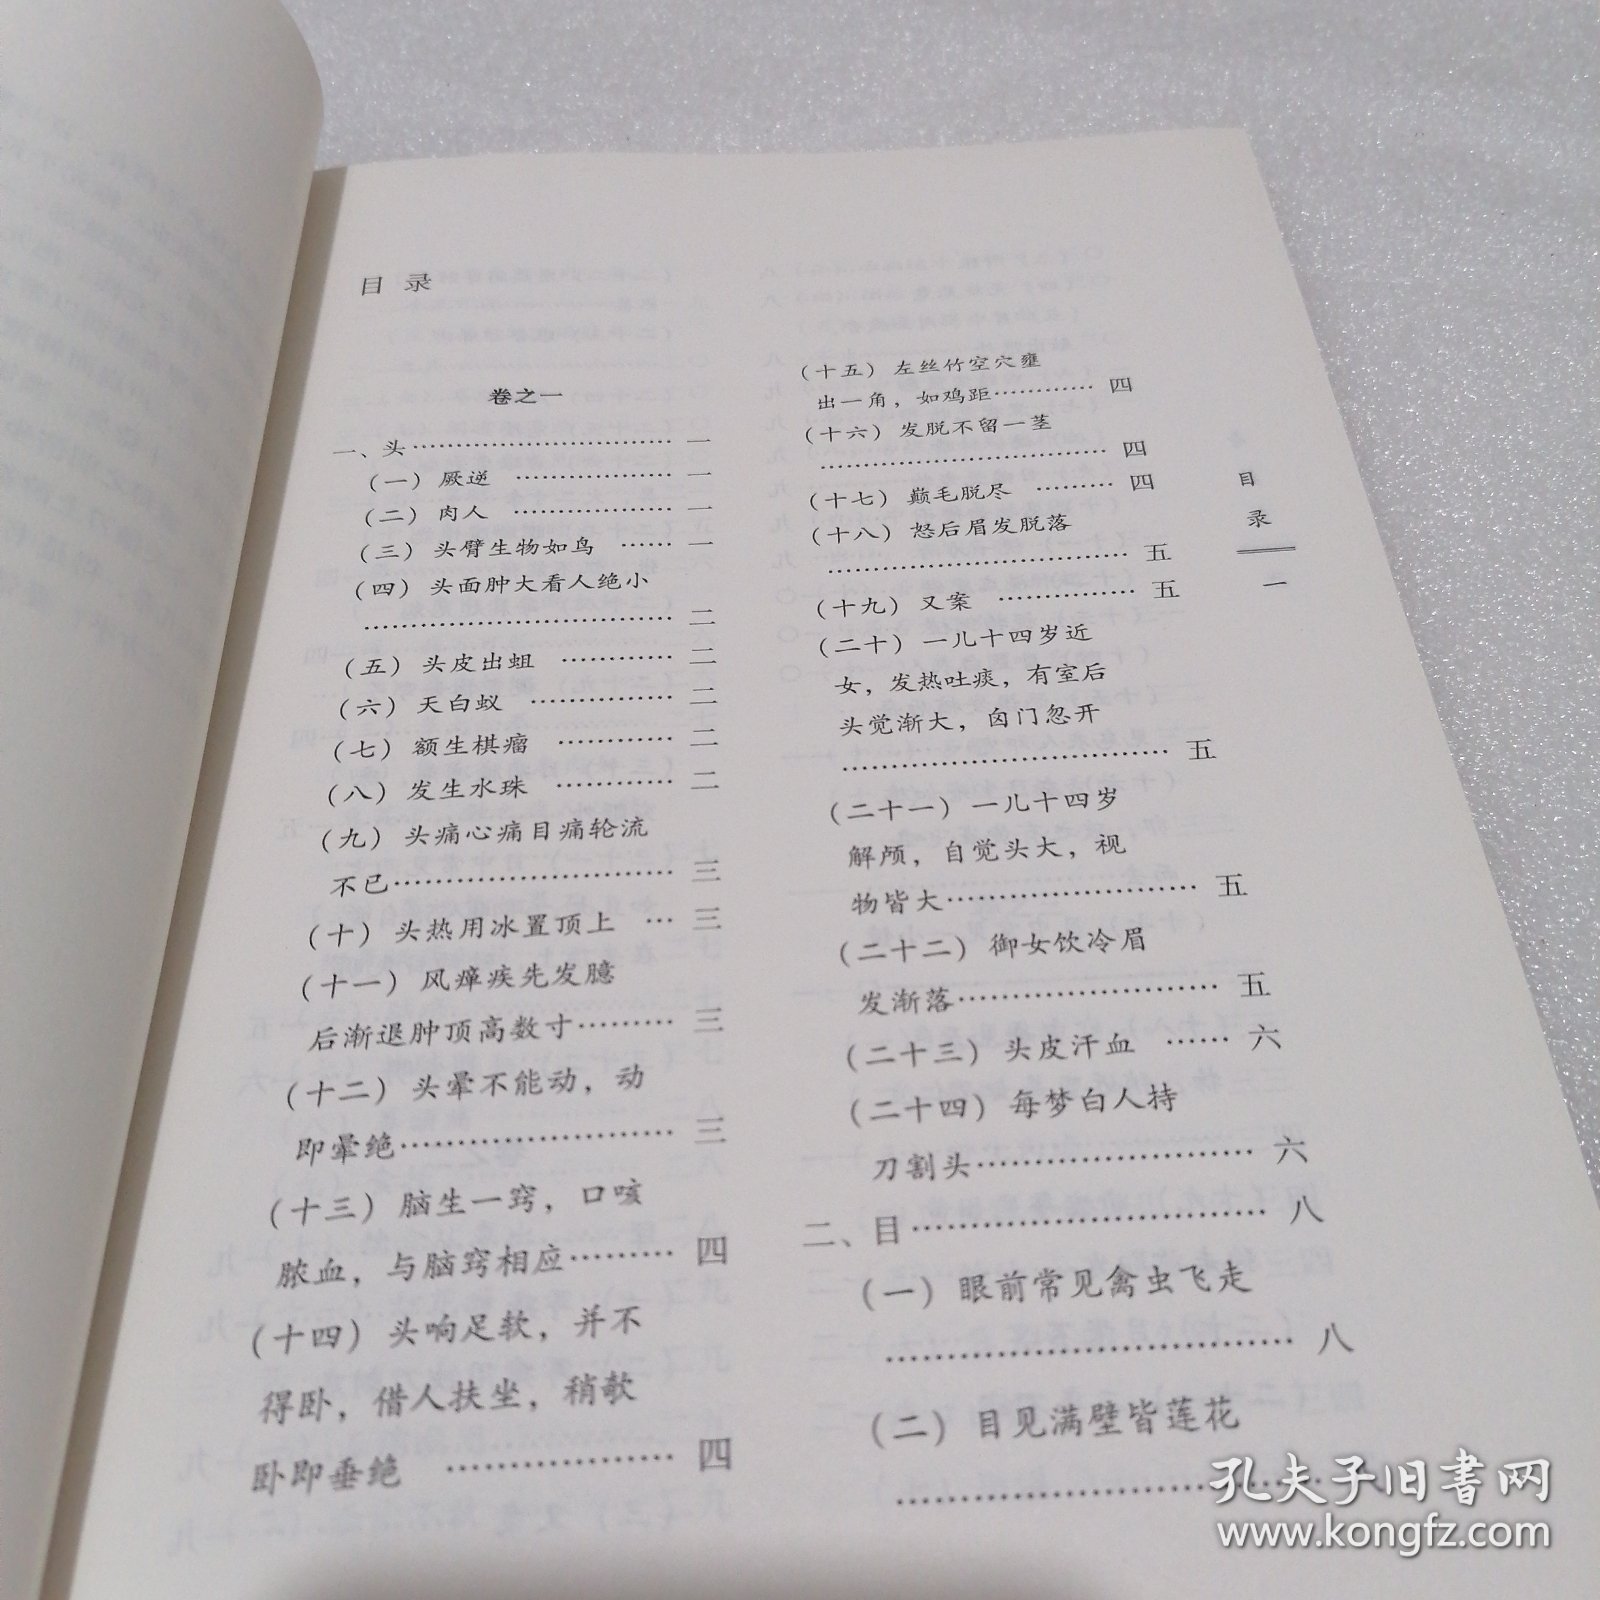 目 录
卷之一
一、头…………………………一
（一）厥逆 ………………一
（二）肉人 ………………一
（三）头臂生物如鸟 ……一
（四）头面肿大看人绝小
………………………………二
（五）头皮出蛆 …………二
（六）天白蚁 ……………二
（七）额生棋瘤 …………二
（八）发生水珠 …………二
（九）头痛心痛目痛轮流
不已…………………………三
（十）头热用冰置顶上 …三
（十一）风瘅疾先发臆
后渐退肿顶高数寸………三
（十二）头晕不能动，动
即晕绝………………………三
（十三）脑生一窍，口咳
脓血，与脑窍相应………四
（十四）头响足软，并不
得卧，借人扶坐，稍欹
卧即垂绝 …………………四
（十五）左丝竹空穴壅
出一角，如鸡距…………四
（十六）发脱不留一茎
………………………………四
（十七）巅毛脱尽 ………四
（十八）怒后眉发脱落
………………………………五
（十九）又案 ……………五
（二十）一儿十四岁近
女，发热吐痰，有室后
头觉渐大，囟门忽开
………………………………五
（二十一）一儿十四岁
解颅，自觉头大，视
物皆大………………………五
（二十二）御女饮冷眉
发渐落………………………五
（二十三）头皮汗血 ……六
（二十四）每梦白人持
刀割头………………………六
二、目…………………………八
（一）眼前常见禽虫飞走
………………………………八
（二）目见满壁皆莲花
………………………………
目
录
一
孔夫子旧书网
www.kongfz.com